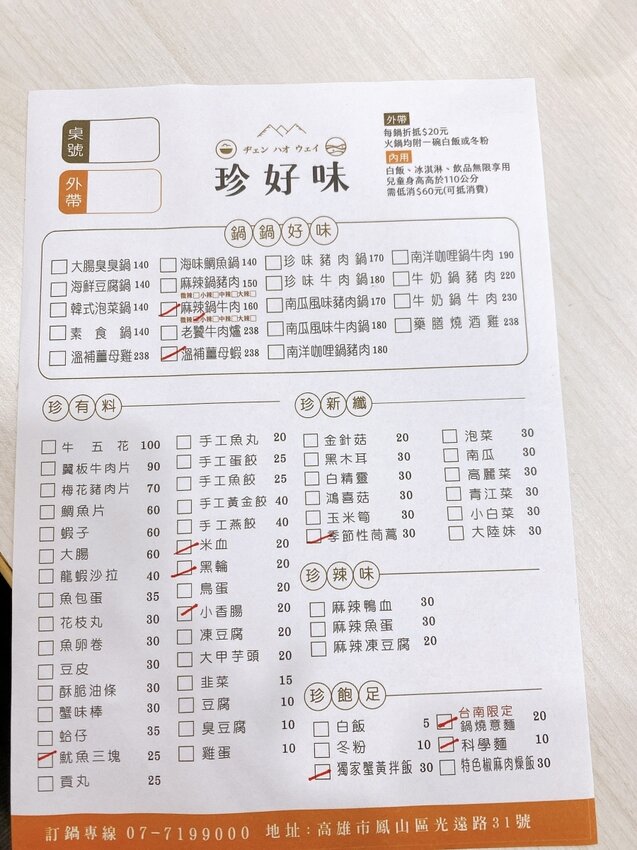 桌號
外帶
ヂェン ハオ ウェイ
珍好味
外帶
每鍋折抵$20元
火鍋均附一碗白飯或冬粉
內用
白飯、冰淇淋、飲品無限享用
兒童身高高於110公分
需低消$60元(可抵消費)
鍋鍋好味
大腸臭臭鍋 140
海鮮豆腐鍋 140
韓式泡菜鍋 140
素食鍋 140
溫補薑母雞 238
海味鯛魚鍋 140
麻辣鍋豬肉 150
微辣 小辣 中辣 大辣
麻辣鍋牛肉 160
微辣 小辣 中辣 大辣
老饕牛肉爐 238
溫補薑母蝦 238
珍味豬肉鍋 170
珍味牛肉鍋 180
南瓜風味豬肉鍋 170
南瓜風味牛肉鍋 180
南洋咖哩鍋豬肉 180
南洋咖哩鍋牛肉 190
牛奶鍋豬肉 220
牛奶鍋牛肉 230
藥膳燒酒雞 238
珍有料
牛五花 100
翼板牛肉片 90
梅花豬肉片 70
鯛魚片 60
蝦子 60
大腸 60
龍蝦沙拉 40
魚包蛋 35
花枝丸 30
魚卵卷 30
豆皮 30
酥脆油條 30
蟹味棒 30
蛤仔 35
魷魚三塊 25
貢丸 25
手工魚丸 20
手工蛋餃 20
手工魚餃 25
手工黃金餃 40
手工燕餃 40
米血 20
黑輪 20
鳥蛋 20
小香腸 20
凍豆腐 20
大甲芋頭 20
韭菜 15
豆腐 10
臭豆腐 10
雞蛋 10
珍新纖
金針菇 20
黑木耳 30
白精靈 30
鴻喜菇 30
玉米筍 30
季節性茼蒿 30
泡菜 30
南瓜 30
高麗菜 30
青江菜 30
小白菜 30
大陸妹 30
珍辣味
麻辣鴨血 30
麻辣魚蛋 30
麻辣凍豆腐 20
珍飽足
白飯 5
冬粉 10
獨家蟹黃拌飯 30
台南限定
鍋燒意麵 20
科學麵 10
特色椒麻肉燥飯 30
訂鍋專線 07-7199000 地址:高雄市鳳山區光遠路31號